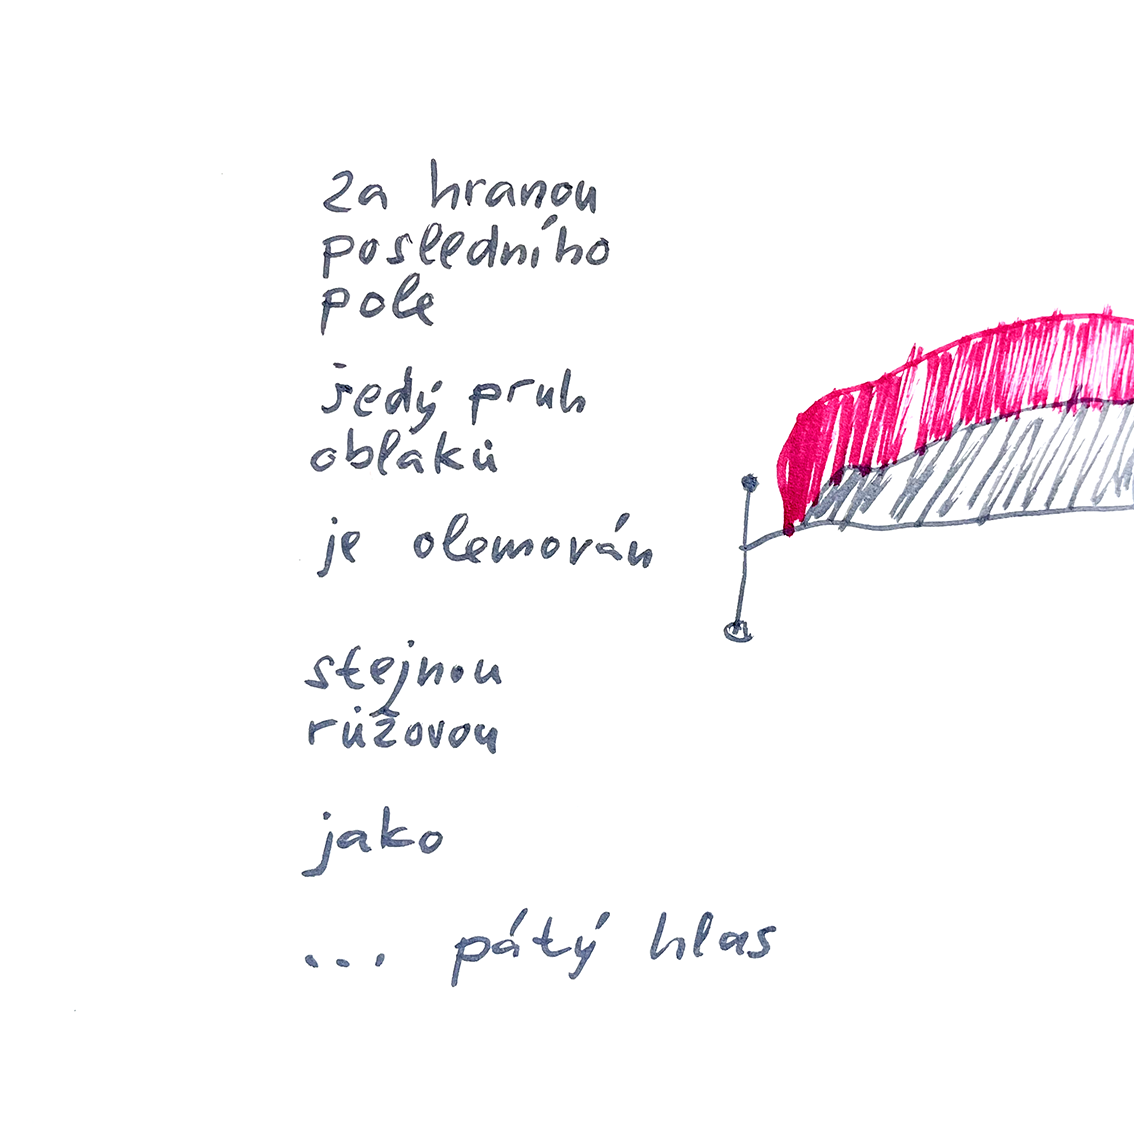 za hranou
posledního
pole
šedý pruh
oblaků
je olemován
stejnou
růžovou
jako
... pátý hlas